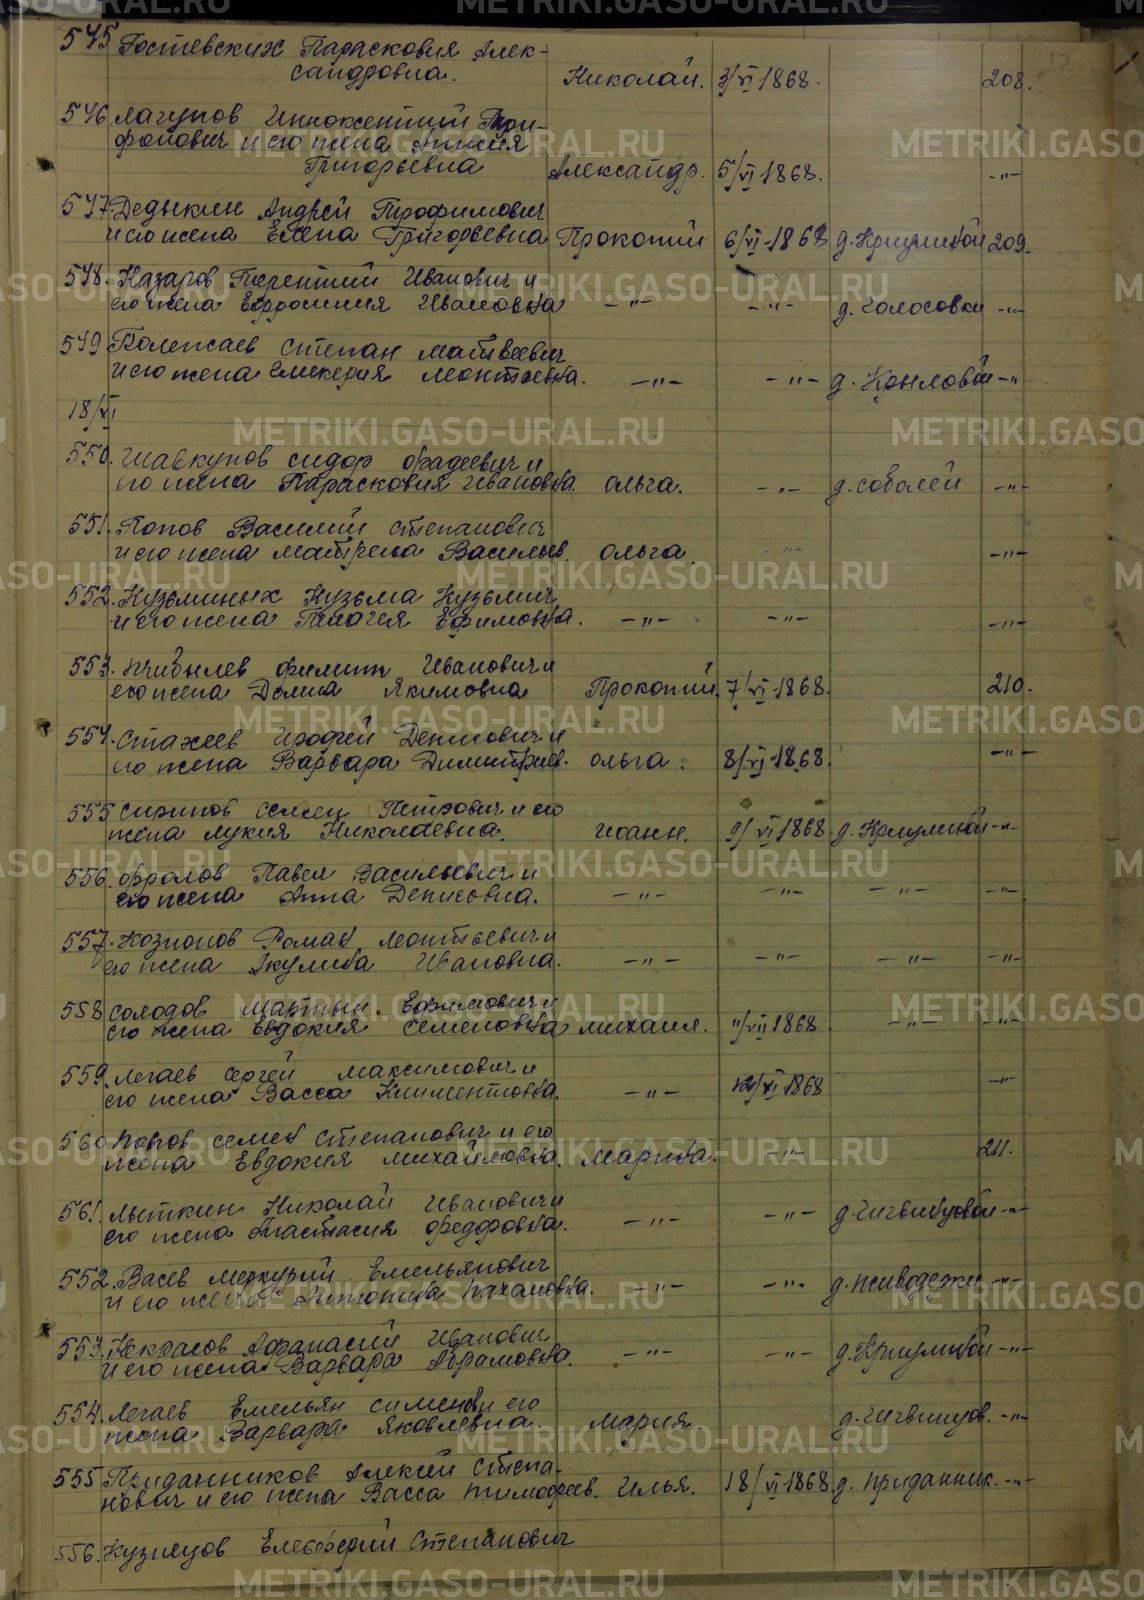 545 Гостевских Парасковия Алек-
сандровна. Николай. 3/VI 1868. 208.
546 Лагунов Иннокентий Три-
фонович и его жена Анисия
Григорьевна Александр. 5/VI 1868. -"-
547. Дедюхин Андрей Трофимович
и его жена Елена Григорьевна Прокопий 6/VI-1868 д. Криулиной 209.
548. Назаров Терентий Иванович и
его жена Ефросиния Ивановна -"- -"- д. Голосовки -"-
549 Полежаев Степан Матвеевич
и его жена Гликерия Леонтьевна. -"- -"- д. Крыловой -"-
18/VI
550. Шавкунов Сидор Фадеевич и
его жена Парасковия Ивановна Ольга. -"- д. Соболей -"-
551. Попов Василий Степанович
и его жена Матрена Васильев. Ольга. -"- -"-
552. Кузьминых Кузьма Кузьмич
и его жена Пелагея Ефимовна. -"- -"- -"-
553. Прибылев Филипп Иванович и
его жена Домна Якимовна Прокопий. 7/VI-1868. 210.
554. Стахеев Ерофей Денисович и
его жена Варвара Димитриев. Ольга. 8/VI-1868. -"-
555 Сиринов Семен Петрович и его
жена Лукия Николаевна. Иоанн. 9/VI 1868. д. Криулиной -"-
556. Фролов Павел Васильевич и
его жена Анна Денисовна. -"- -"- -"- -"-
557. Козионов Роман Леонтьевич и
его жена Акулина Ивановна. -"- -"- -"- -"-
558 Солодов Мартын Ефимович и
его жена Евдокия Семеновна Михаил. 11/VII 1868 -"- -"-
559. Легаев Сергей Максимович и
его жена Васса Климентовна. -"- 12/VI 1868 -"-
560 Попов Семен Степанович и его
жена Евдокия Михайловна. Марина. -"- 211.
561. Лыткин Николай Иванович и
его жена Анастасия Федоровна. -"- -"- д. Чигвинцовой -"-
552. Васев Меркурий Емельянович
и его жена Антонина -"- -"- д. Живодежки -"-
553. Некрасов Афанасий Иванович
и его жена Варвара Абрамовна. -"- -"- д. Криулиной -"-
554. Легаев Емельян Сименов и его
жена Варвара Яковлевна. Мария. д. Чигвинцов. -"-
555 Приданников Алексей Степа-
нович и его жена Васса Тимофеев. Илья. 18/VI-1868. д. Приданник. -"-
556. Кузнецов Елевферий Степанович
METRIKI.GASO-URAL.RU